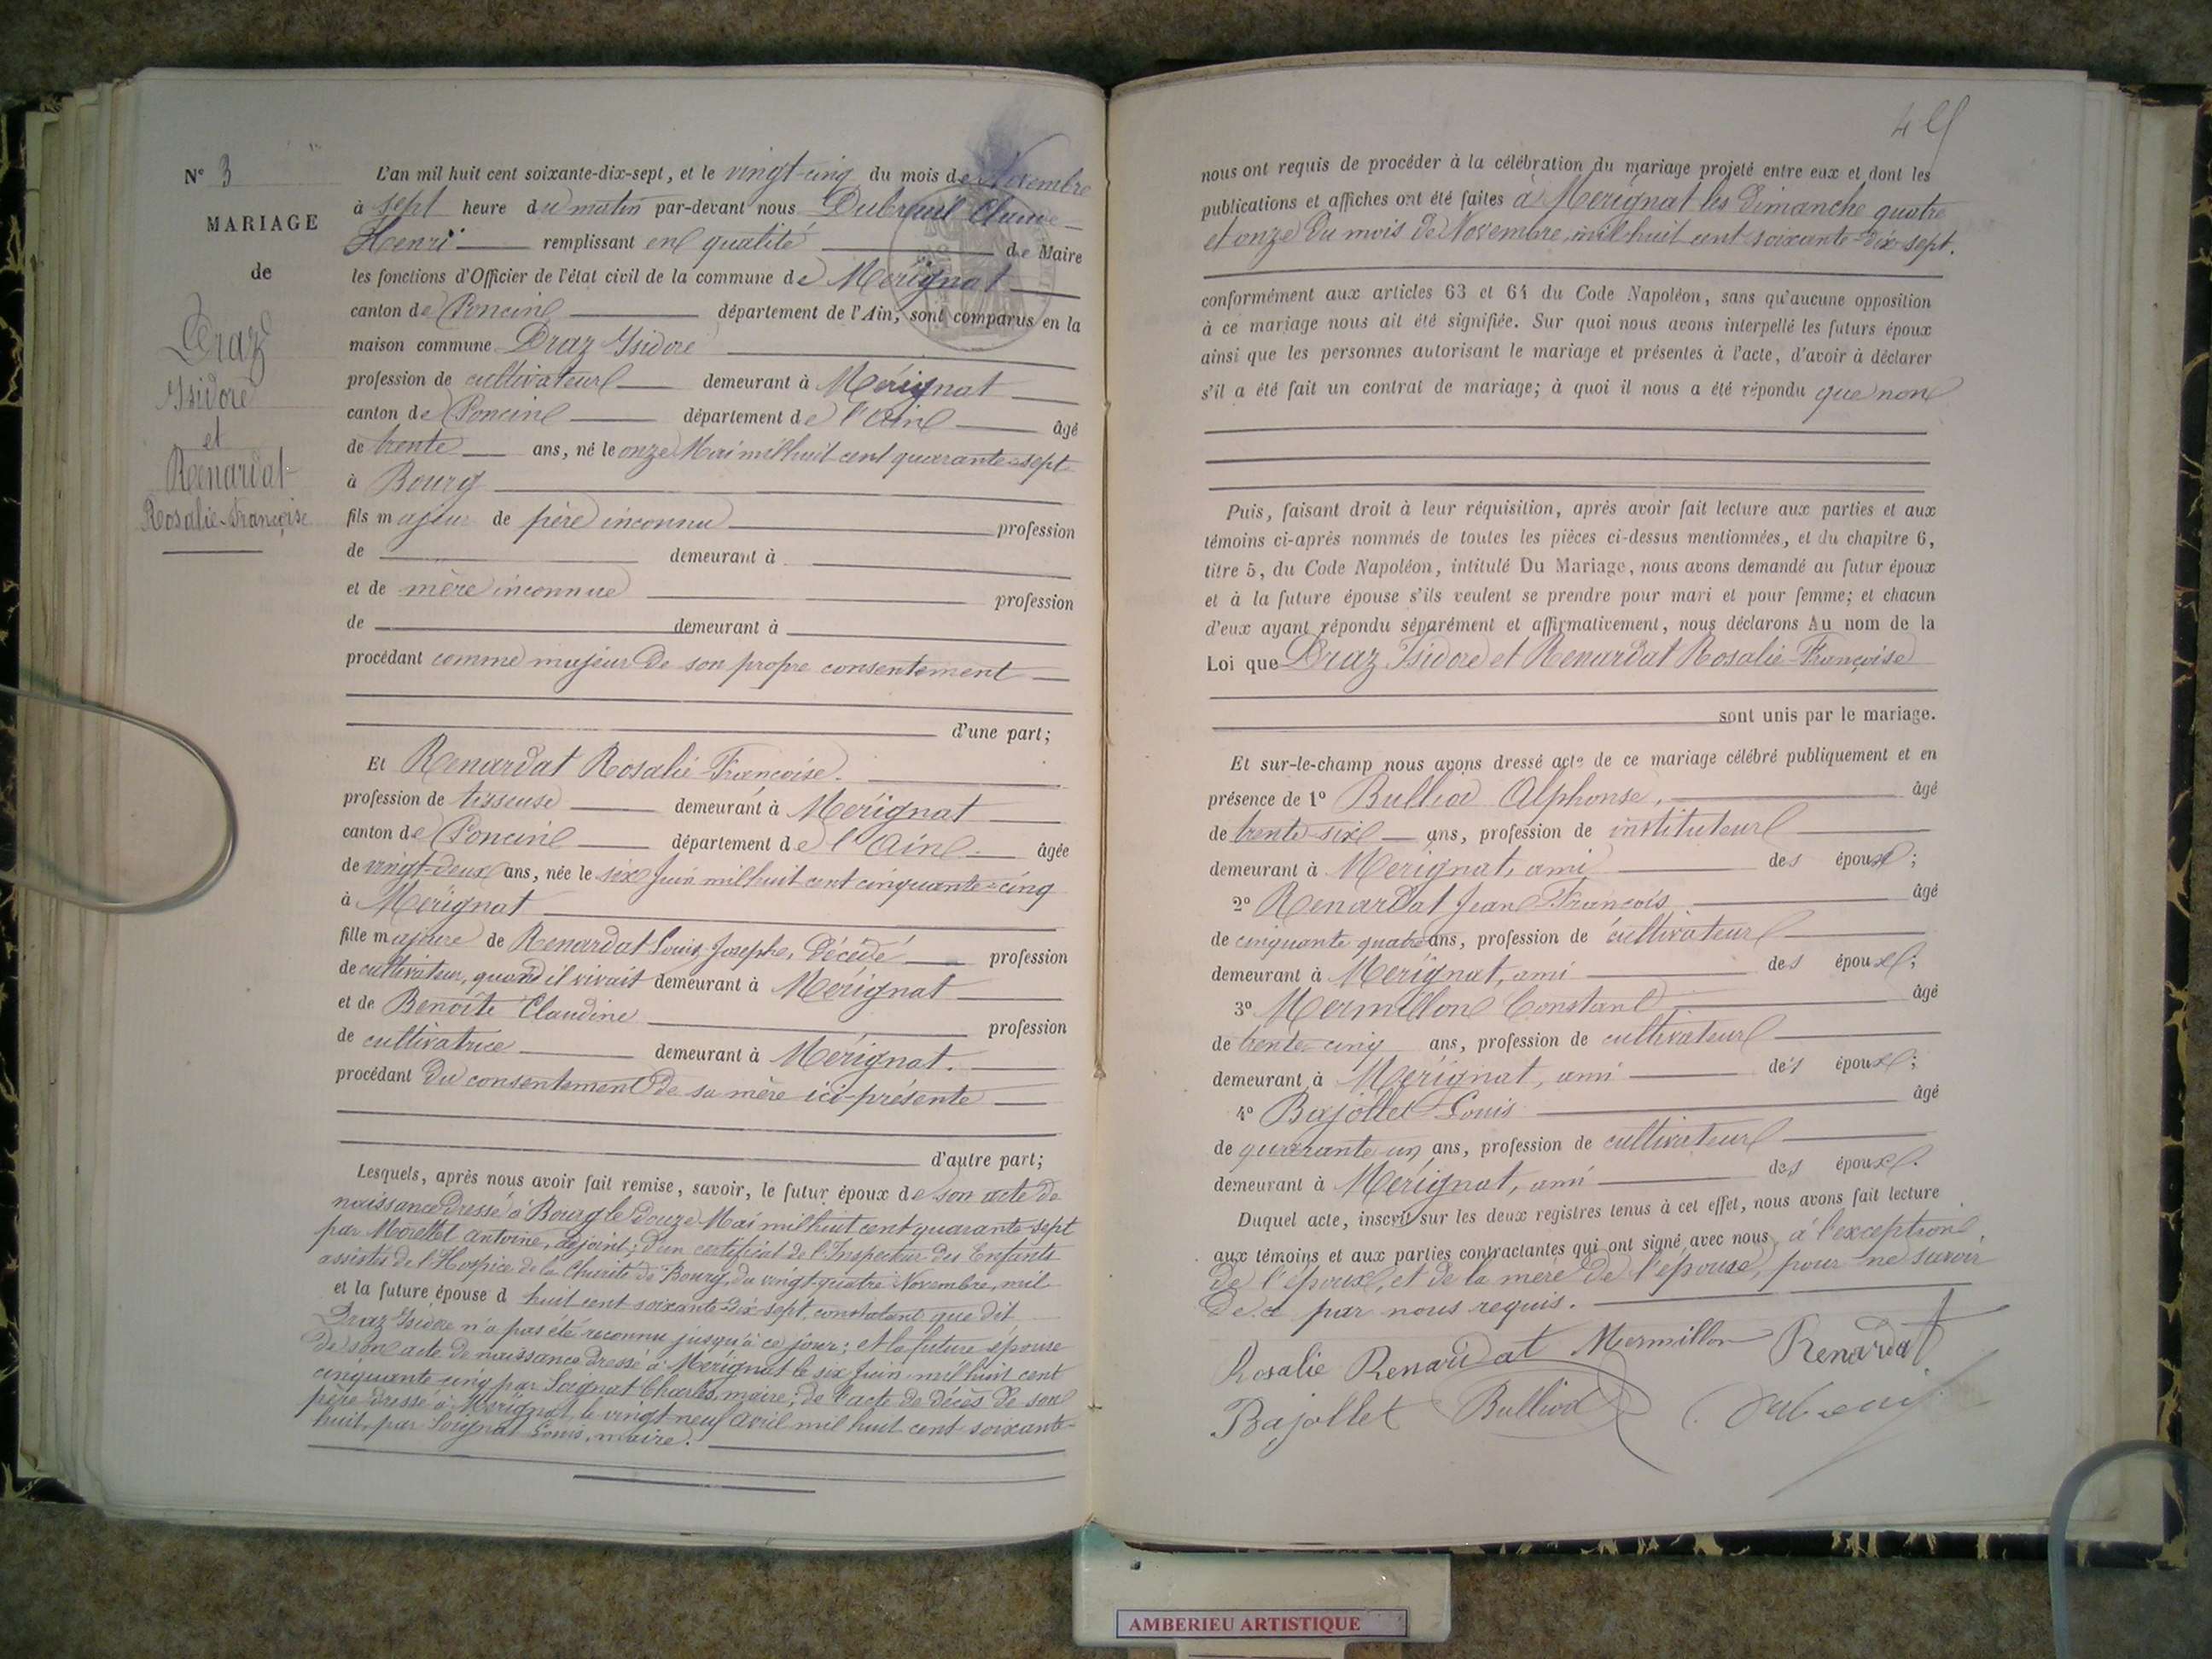 N° 3
MARIAGE
de
Draz
Isidore
et
Renardat
Rosalie-Françoise
L'an mil huit cent soixante-dix-sept, et le vingt-cinq du mois de Novembre
à sept heure du matin par-devant nous Dubreuil Claude
Henri remplissant en qualité de Maire
les fonctions d'Officier de l'état civil de la commune de Mérignat
canton de Poncin département de l'Ain, sont comparus en la
maison commune Draz Isidore
profession de cultivateur demeurant à Mérignat
canton de Poncin département de l'Ain âgé
de trente ans, né le onze Mai mil huit cent quarante-sept
à Bourg
fils majeur de père inconnu profession
de demeurant à
et de mère inconnue profession
de demeurant à
procédant comme majeur de son propre consentement
d'une part;
Et Renardat Rosalie-Françoise.
profession de tisseuse demeurant à Mérignat
canton de Poncin département de l'Ain. âgée
de vingt-deux ans, née le six Juin mil huit cent cinquante-cinq
à Mérignat
fille majeure de Renardat Louis-Josephe, décédé profession
de cultivateur, quand il vivait demeurant à Mérignat
et de Benoîte Claudine profession
de cultivatrice demeurant à Mérignat.
procédant du consentement de sa mère ici-présente
d'autre part;
Lesquels, après nous avoir fait remise, savoir, le futur époux de son acte de
naissance dressé à Bourg le douze Mai mil huit cent quarante-sept
par Morettet Antoine, adjoint; d'un certificat de l'Inspecteur des Enfants
assistés de l'Hospice de la Charité de Bourg, du vingt-quatre Novembre, mil
et la future épouse d huit cent soixante-dix-sept, constatant que dit
Draz Isidore n'a pas été reconnu jusqu'à ce jour; et la future épouse
de son acte de naissance dressé à Mérignat le six Juin mil huit cent
cinquante-cinq par Soignat Charles, maire; de l'acte de décès de son
père dressé à Mérignat, le vingt neuf Avril mil huit cent soixante-
huit, par Soignat Louis, maire.
nous ont requis de procéder à la célébration du mariage projeté entre eux et dont les
publications et affiches ont été faites à Mérignat les Dimanche quatre
et onze du mois de Novembre, mil huit cent soixante-dix-sept.
conformément aux articles 63 et 64 du Code Napoléon, sans qu'aucune opposition
à ce mariage nous ait été signifiée. Sur quoi nous avons interpellé les futurs époux
ainsi que les personnes autorisant le mariage et présentes à l'acte, d'avoir à déclarer
s'il a été fait un contrat de mariage; à quoi il nous a été répondu que non
Puis, faisant droit à leur réquisition, après avoir fait lecture aux parties et aux
témoins ci-après nommés de toutes les pièces ci-dessus mentionnées, et du chapitre 6,
titre 5, du Code Napoléon, intitulé Du Mariage, nous avons demandé au futur époux
et à la future épouse s'ils veulent se prendre pour mari et pour femme; et chacun
d'eux ayant répondu séparément et affirmativement, nous déclarons Au nom de la
Loi que Draz Isidore et Renardat Rosalie-Françoise
sont unis par le mariage.
Et sur-le-champ nous avons dressé acte de ce mariage célébré publiquement et en
présence de 1° Bulliod Alphonse, âgé
de trente-six ans, profession de instituteur
demeurant à Mérignat, ami des époux;
2° Renardat Jean François âgé
de cinquante quatre ans, profession de cultivateur
demeurant à Mérignat, ami des époux;
3° Mermillon Constant âgé
de trente-cinq ans, profession de cultivateur
demeurant à Mérignat, ami des époux;
4° Bajollet Louis âgé
de quarante-un ans, profession de cultivateur
demeurant à Mérignat, ami des époux.
Duquel acte, inscrit sur les deux registres tenus à cet effet, nous avons fait lecture
aux témoins et aux parties contractantes qui ont signé avec nous, à l'exception
de l'époux, et de la mère de l'épouse, pour ne savoir
de ce par nous requis.
Rosalie Renardat Mermillon Renardat
Bajollet Bulliod Dubreuil
AMBERIEU ARTISTIQUE